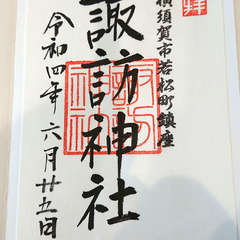 拝
横須賀市若松町鎮座
諏訪神社
令和四年六月廿五日